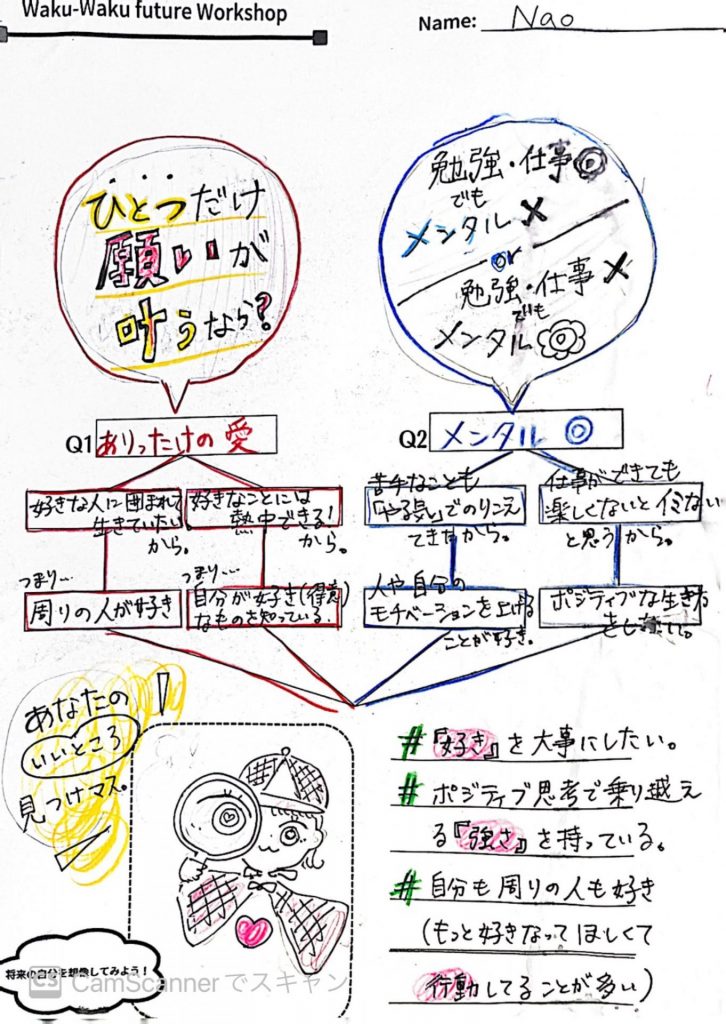 Waku-Waku future Workshop
Name: Nao
ひとつだけ
願いが
叶うなら?
勉強・仕事◎
でも
メンタル×
or
勉強・仕事×
でも
メンタル
Q1 ありったけの愛
好きな人に囲まれて
生きていたい
から。
好きなことには
熱中できる!
から。
つまり…
周りの人が好き
つまり…
自分が好き(得意)
なものを知っている。
Q2 メンタル ◎
苦手なことも
「やる気」でのりこえ
てきたから。
仕事ができても
楽しくないとイミない
と思うから。
人や自分の
モチベーションを上げる
ことが好き。
ポジティブな生き方
を
あなたの
いいところ
見つけマス。
#『好き』を大事にしたい。
#ポジティブ思考で乗り越え
る『強さ』を持っている。
#自分も周りの人も好き
(もっと好きなってほしくて
行動してることが多い)
将来の自分を想像してみよう!
CS CamScannerでスキャン